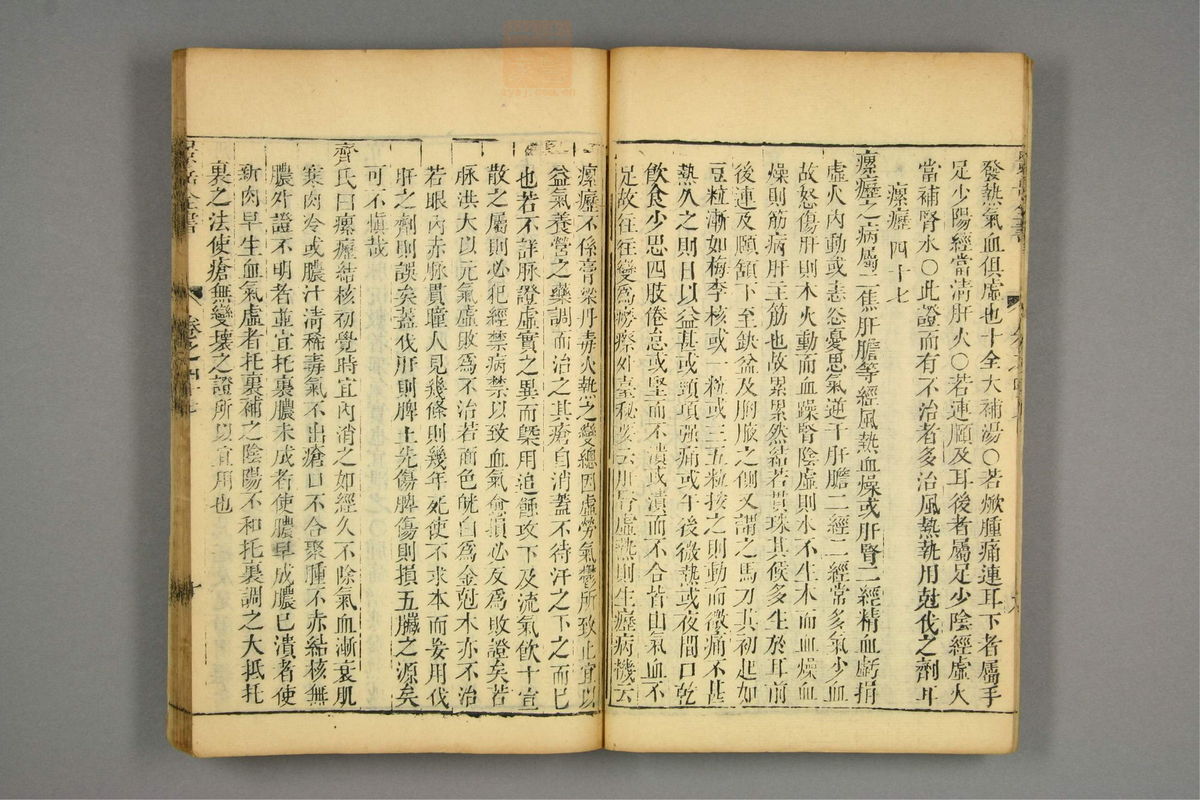 發熱氣血俱虛也十全大補湯○若焮腫痛連耳下者屬手
足少陽經當清肝火○若連頤及耳後者屬足少陰經虛火
當補腎水○此證而有不治者多治風熱執用尅伐之劑耳
瘰癧四十七
瘰癧之病屬三焦肝膽等經風熱血燥或肝腎二經精血虧損
虛火內動或恚怒憂思氣逆于肝膽二經二經常多氣少血
故怒傷肝則木火動而血躁腎陰虛則水不生木而血燥血
燥則筋病肝主筋也故累累然結若貫珠其候多生於耳前
後連及頤頷下至鈌盆及胸腋之側又謂之馬刀其初起如
豆粒漸如梅李核或一粒或三五粒按之則動而微痛不甚
熱久之則日以益甚或頸項强痛或午後微熱或夜間口乾
飲食少思四肢倦怠或堅而不潰或潰而不合皆由氣血不
足故往往變爲癆瘵外臺秘要云肝腎虛熱則生癧病機云
瘰癧不係膏梁丹毒火熱之變總因虛勞氣鬱所致止宜以
益氣養營之藥調而治之其瘡自消蓋不待汗之下之而已
也若不詳脉證虛實之異而槩用追蝕攻下及流氣飲十宣
散之屬則必犯經禁病禁以致血氣愈損必反爲敗證矣若
脉洪大以元氣虛敗爲不治若面色㿠白爲金尅木亦不治
若眼內赤脉貫瞳人見幾條則幾年死使不求本而妄用伐
肝之劑則誤矣蓋伐肝則脾土先傷脾傷則損五臟之源矣
可不愼哉
齊氏曰瘰癧結核初覺時宜內消之如經久不除氣血漸衰肌
寒肉冷或膿汁清稀毒氣不出瘡口不合聚腫不赤結核無
膿外證不明者並宜托裏膿未成者使膿早成膿已潰者使
新肉早生血氣虛者托裏補之陰陽不和托裏調之大抵托
裏之法使瘡無變壞之證所以宜用也